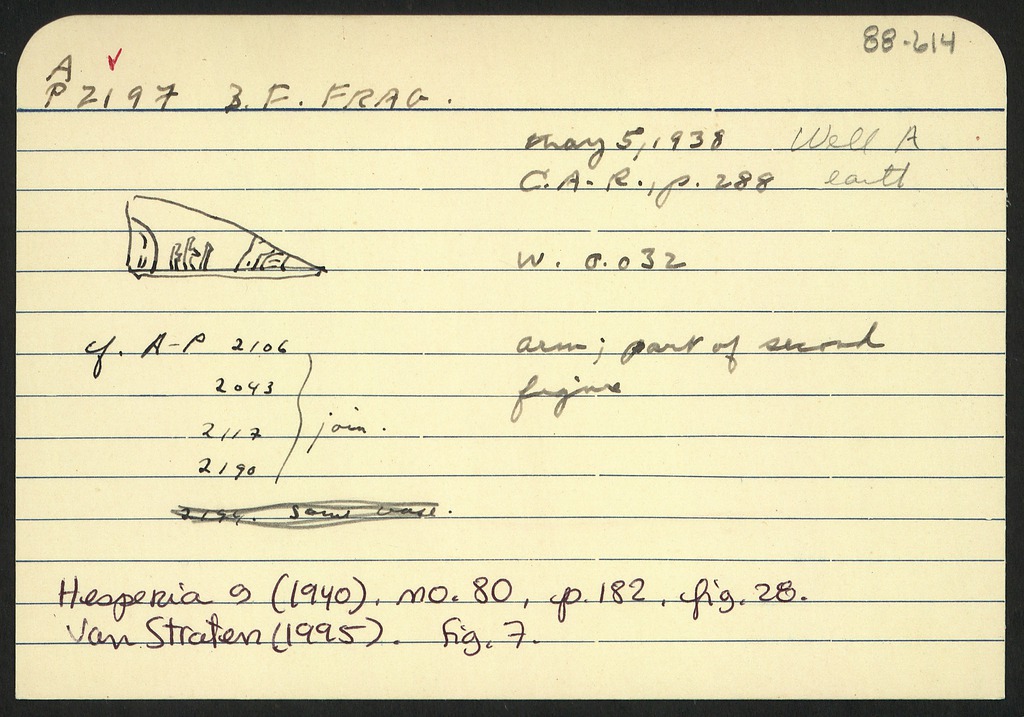 88-614
A ✓
P 2197 B. F. FRAG.
may 5, 1938 Well A
C.A.R., p. 288 earth
W. 0.032
cf. A-P 2106
2043
2117
2190
join.
arm; part of second
figure
same vase.
Hesperia 9 (1940), no. 80, p. 182, fig. 28.
Van Straten (1995). fig. 7.